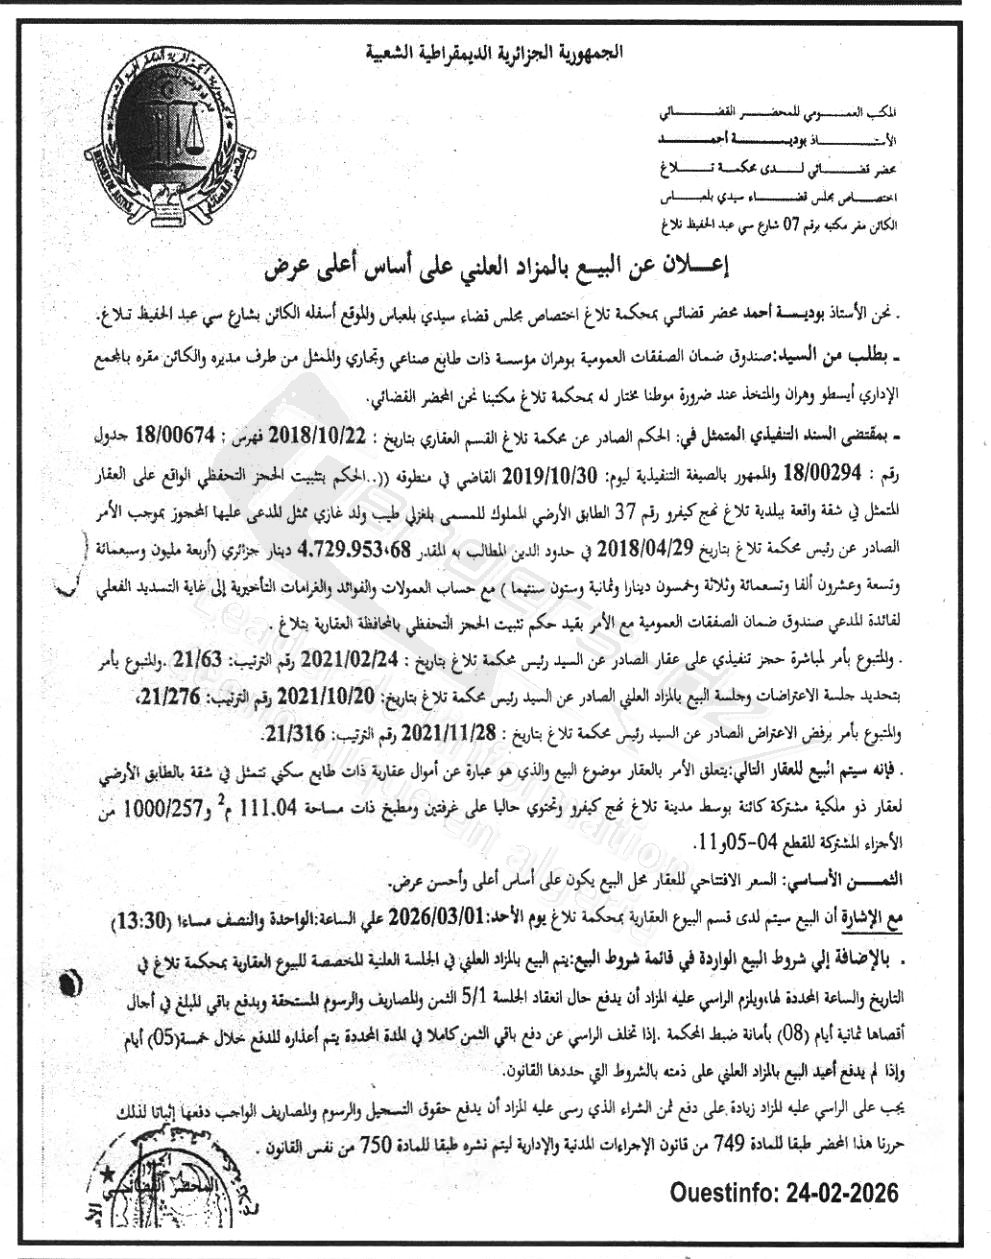 الجمهورية الجزائرية الديمقراطية الشعبية
المكتب العمومي للمحضر القضائي
الأستاذ بوديسة أحمد
محضر قضائي لدى محكمة تلاغ
اختصاص مجلس قضاء سيدي بلعباس
الكائن مقر مكتبه برقم 07 شارع سي عبد الحفيظ تلاغ
إعلان عن البيع بالمزاد العلني على أساس أعلى عرض
. نحن الأستاذ بوديسة أحمد محضر قضائي بمحكمة تلاغ اختصاص مجلس قضاء سيدي بلعباس والموقع أسفله الكائن بشارع سي عبد الحفيظ تلاغ.
ـ بطلب من السيد:صندوق ضمان الصفقات العمومية بوهران مؤسسة ذات طابع صناعي وتجاري والممثل من طرف مديره والكائن مقره بالمجمع
الإداري أيسطو وهران والمتخذ عند ضرورة موطنا مختار له بمحكمة تلاغ مكتبنا نحن المحضر القضائي.
ـ بمقتضى السند التنفيذي المتمثل في: الحكم الصادر عن محكمة تلاغ القسم العقاري بتاريخ : 2018/10/22 فهرس : 18/00674 جدول
رقم : 18/00294 والممهور بالصيغة التنفيذية ليوم: 2019/10/30 القاضي في منطوقه ((..الحكم بتثبيت الحجز التحفظي الواقع على العقار
المتمثل في شقة واقعة ببلدية تلاغ نهج كيفرو رقم 37 الطابق الأرضي المملوك للمسمى بلغزلي طيب ولد غازي ممثل المدعى عليها المحجوز بموجب الأمر
الصادر عن رئيس محكمة تلاغ بتاريخ 2018/04/29 في حدود الدين المطالب به المقدر 4.729.953،68 دينار جزائري (أربعة مليون وسبعمائة
وتسعة وعشرون ألفا وتسعمائة وثلاثة وخمسون دينارا وثمانية وستون سنتيما ) مع حساب العمولات والفوائد والغرامات التأخيرية إلى غاية التسديد الفعلي
لفائدة المدعي صندوق ضمان الصفقات العمومية مع الأمر بقيد حكم تثبيت الحجز التحفظي بالمحافظة العقارية بتلاغ .
. والمتبوع بأمر لمباشرة حجز تنفيذي على عقار الصادر عن السيد رئيس محكمة تلاغ بتاريخ : 2021/02/24 رقم الترتيب: 21/63 .والمتبوع بأمر
بتحديد جلسة الاعتراضات وجلسة البيع بالمزاد العلني الصادر عن السيد رئيس محكمة تلاغ بتاريخ: 2021/10/20 رقم الترتيب: 21/276،
والمتبوع بأمر برفض الاعتراض الصادر عن السيد رئيس محكمة تلاغ بتاريخ : 2021/11/28 رقم الترتيب: 21/316.
. فإنه سيتم البيع للعقار التالي:يتعلق الأمر بالعقار موضوع البيع والذي هو عبارة عن أموال عقارية ذات طابع سكني تتمثل في شقة بالطابق الأرضي
لعقار ذو ملكية مشتركة كائنة بوسط مدينة تلاغ نهج كيفرو وتحتوي حاليا على غرفتين ومطبخ ذات مساحة 111.04 م2 و1000/257 من
الأجزاء المشتركة للقطع 04-05و11.
الثمن الأساسي: السعر الافتتاحي للعقار محل البيع يكون على أساس أعلى وأحسن عرض.
مع الإشارة أن البيع سيتم لدى قسم البيوع العقارية بمحكمة تلاغ يوم الأحد:2026/03/01 علي الساعة:الواحدة والنصف مساءا (13:30)
. بالإضافة إلي شروط البيع الواردة في قائمة شروط البيع:يتم البيع بالمزاد العلني في الجلسة العلنية المخصصة للبيوع العقارية بمحكمة تلاغ في
التاريخ والساعة المحددة لها،ويلزم الراسي عليه المزاد أن يدفع حال انعقاد الجلسة 5/1 الثمن والمصاريف والرسوم المستحقة ويدفع باقي المبلغ في أجال
أقصاها ثمانية أيام (08) بأمانة ضبط المحكمة .إذا تخلف الراسي عن دفع باقي الثمن كاملا في المدة المحددة يتم أعذاره للدفع خلال خمسة(05) أيام
وإذا لم يدفع أعيد البيع بالمزاد العلني على ذمته بالشروط التي حددها القانون.
يجب على الراسي عليه المزاد زيادة على دفع ثمن الشراء الذي رسى عليه المزاد أن يدفع حقوق التسجيل والرسوم والمصاريف الواجب دفعها إثباتا لذلك
حررنا هذا المحضر طبقا للمادة 749 من قانون الإجراءات المدنية والإدارية ليتم نشره طبقا للمادة 750 من نفس القانون .
المحضر القضائي
Ouestinfo: 24-02-2026